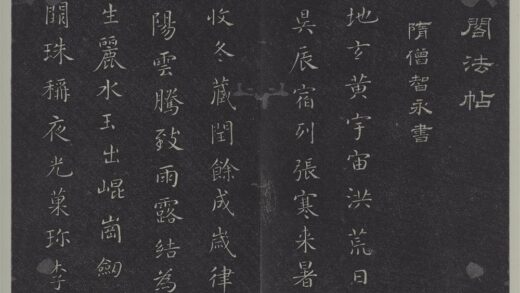 閣法帖
隋僧智永書
地玄黃宇宙洪荒日
昃辰宿列張寒来暑
收冬藏閏餘成歲律
陽雲騰致雨露結為
生麗水玉出崐崗劔
闕珠稱夜光菓珎李